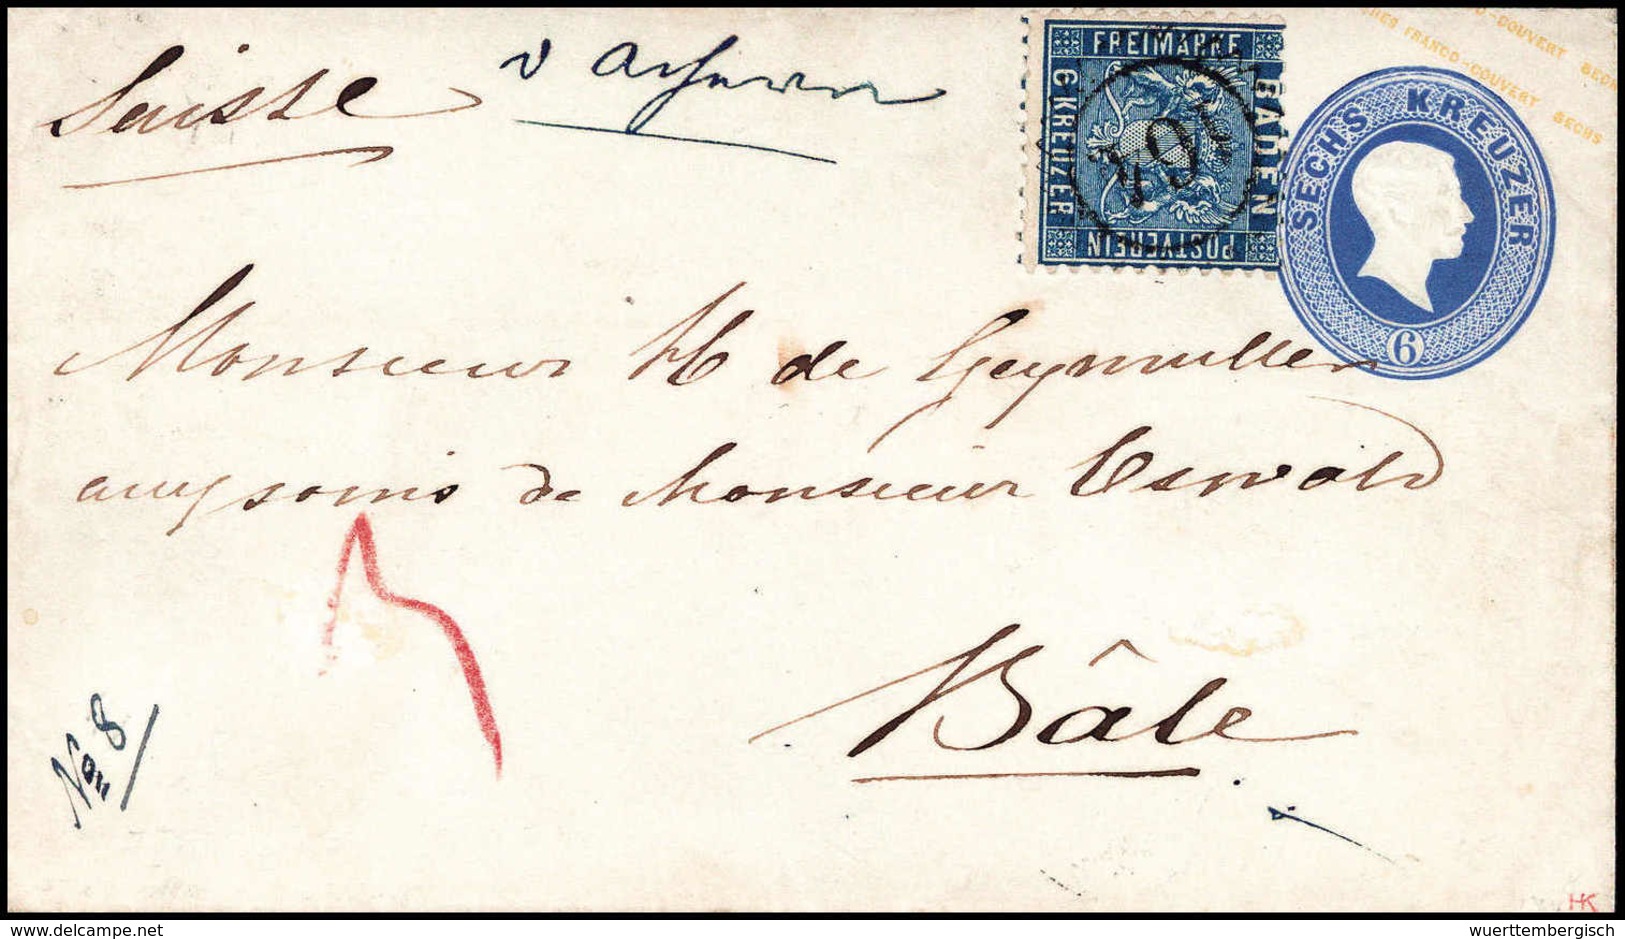 Suisse
v Achern
FREIMARKE
BADEN
6 KREUZER
POSTVEREIN
COUVERT SECHS
FRANCO-COUVERT SECHS
SECHS KREUZER
6
Monsieur H de Geymuller
aux soins de Monsieur Oswald
Bâle
No 8
HK
delcampe.net
wuerttembergisch